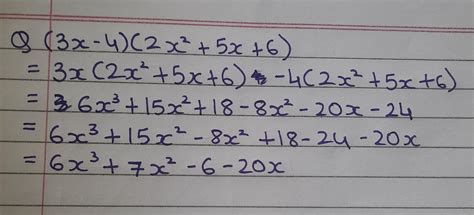 Q (3x-4)(2x²+5x+6)
= 3x(2x²+5x+6) -4(2x²+5x+6)
= 6x³+15x²+18-8x²-20x-24
= 6x³+15x²-8x²+18-24-20x
= 6x³+7x²-6-20x